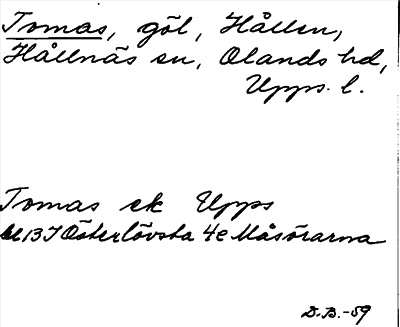 Tomas, göl, Hållen,
Hållnäs sn, Olands hd,
Upps. l.
Tomas ek Upps
bl 13I Österlövsta 4e Måsörarna
D.B.-59